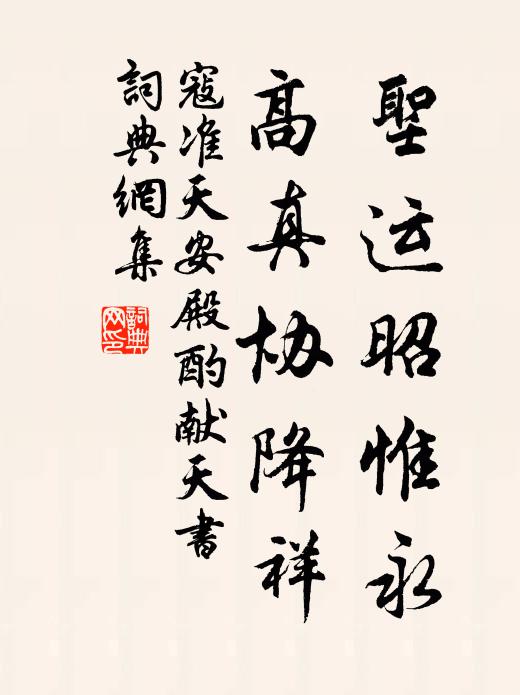 聖运昭惟永
高真协降祥
寇准天安殿酌献天書
詞典網集
詞典网印